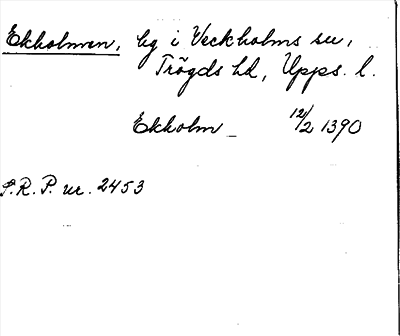 Ekholmen, lg i Veckholms sn,
Trögds hd, Upps. l.
Ekholm _ 12/2 1390
S.R.P. nr. 2453